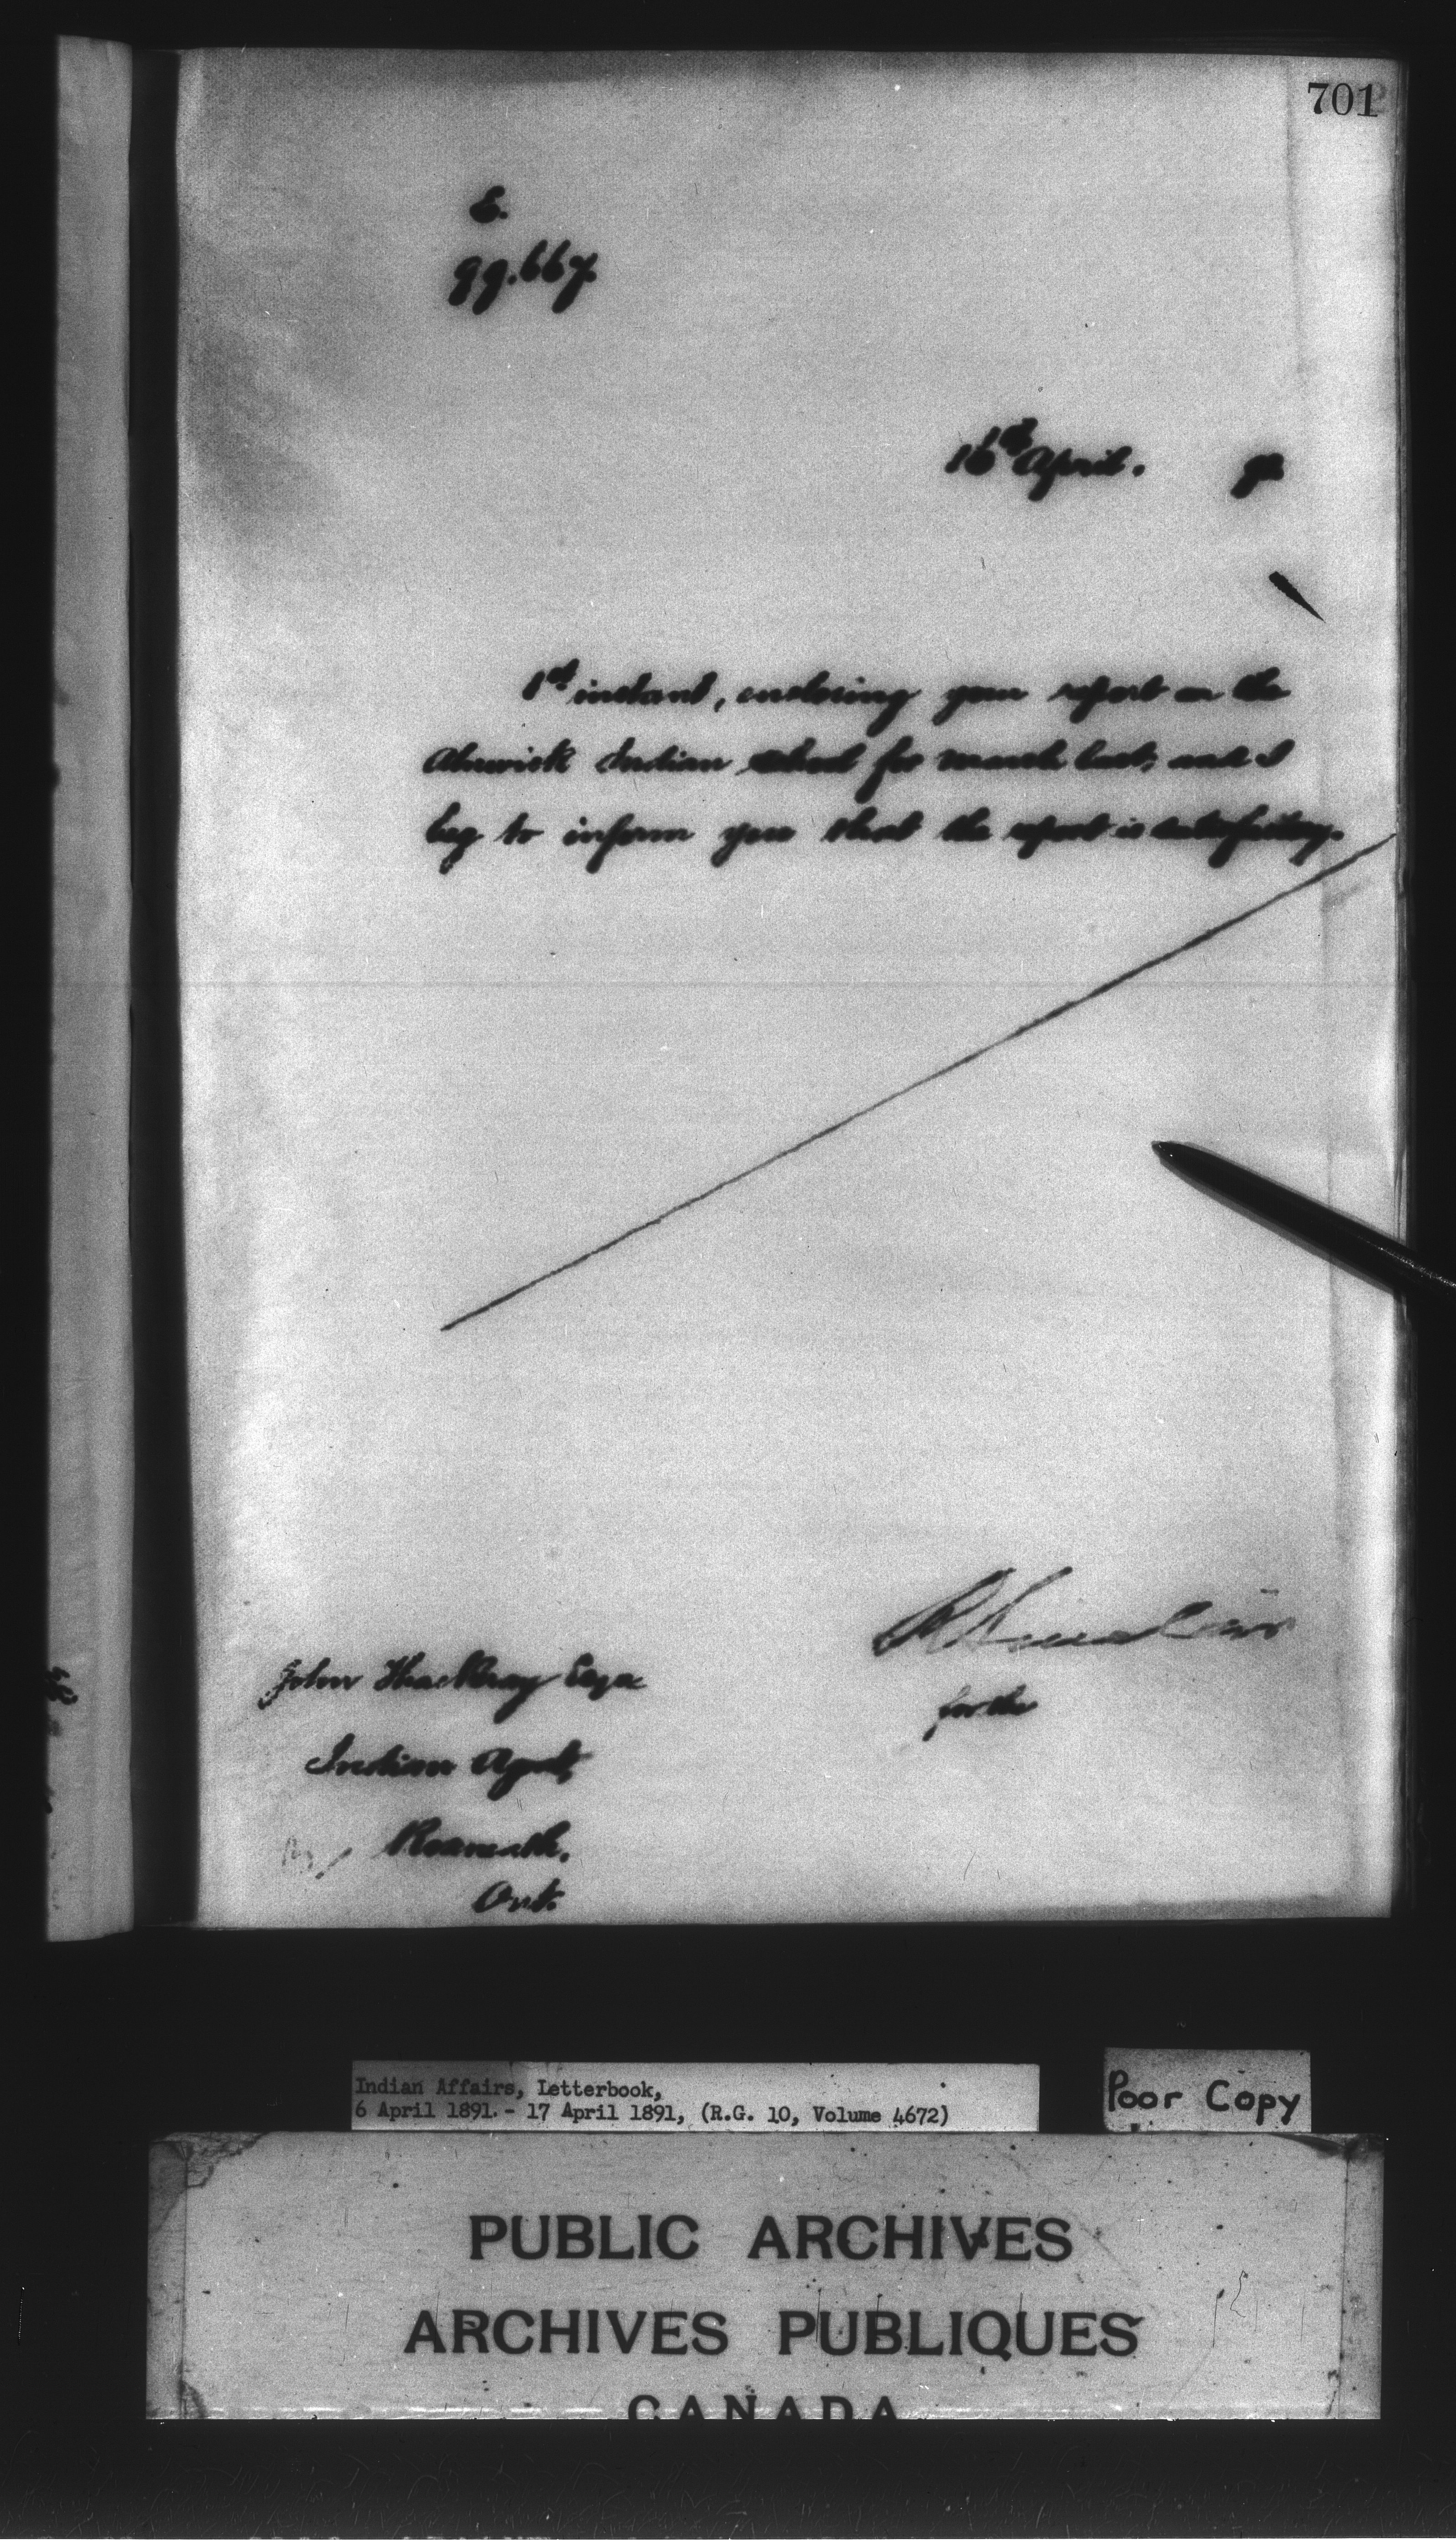 701
E.
99.667
16th April. 91
1st instant, enclosing your report on the
Alnwick Indian school for March last, and I
beg to inform you that the report is satisfactory.
R Sinclair
for the
John Thackeray Esqr
Indian Agent,
Roseneath,
Ont.
Indian Affairs, Letterbook,
6 April 1891.- 17 April 1891, (R.G. 10, Volume 4672)
Poor Copy
PUBLIC ARCHIVES
ARCHIVES PUBLIQUES
CANADA